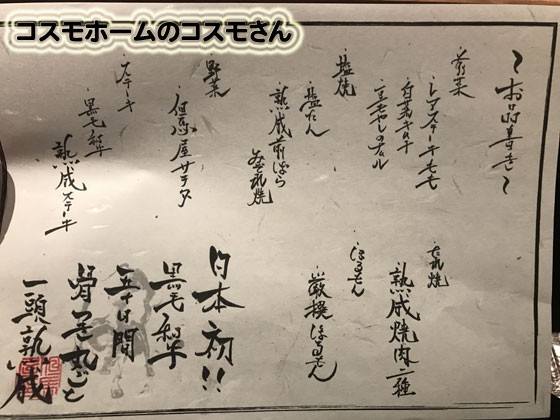 コスモホームのコスモさん
～お品書き～
・前菜
レアステーキモモ
白菜キムチ
豆もやしのナムル
・塩焼
・塩たん
熟成前ばら
・野菜
但馬屋サラダ
・ステーキ
・黒毛和牛
熟成ステーキ
・たれ焼
熟成焼肉二種
・ほるもん
厳撰ほるもん
日本初!!
黒毛和牛
五十日間
骨ごと丸ごと
一頭熟成